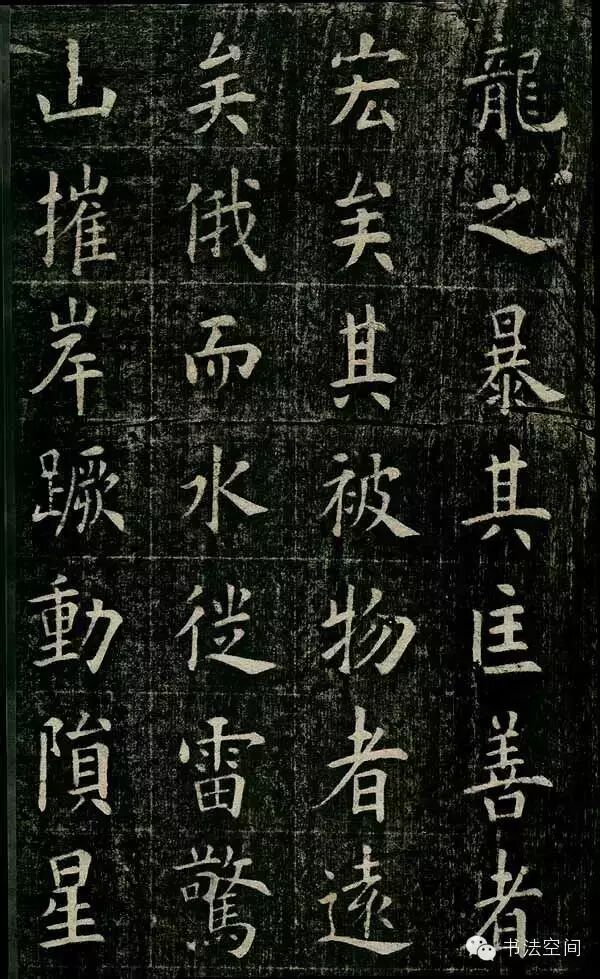 龍之暴其匡善者
宏矣其被物者遠
矣俄而水従雷驚
山摧岸蹶動隕星
书法空间